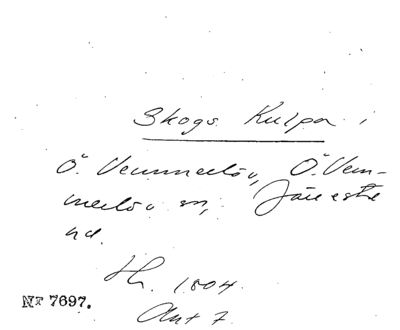 Skogs Kulpa i
Ö. Vemmerlöv, Ö. Vem-
merlöv sn, Järrestad
hd.
Hs. 1804.
Ant 7.
Nr 7697.